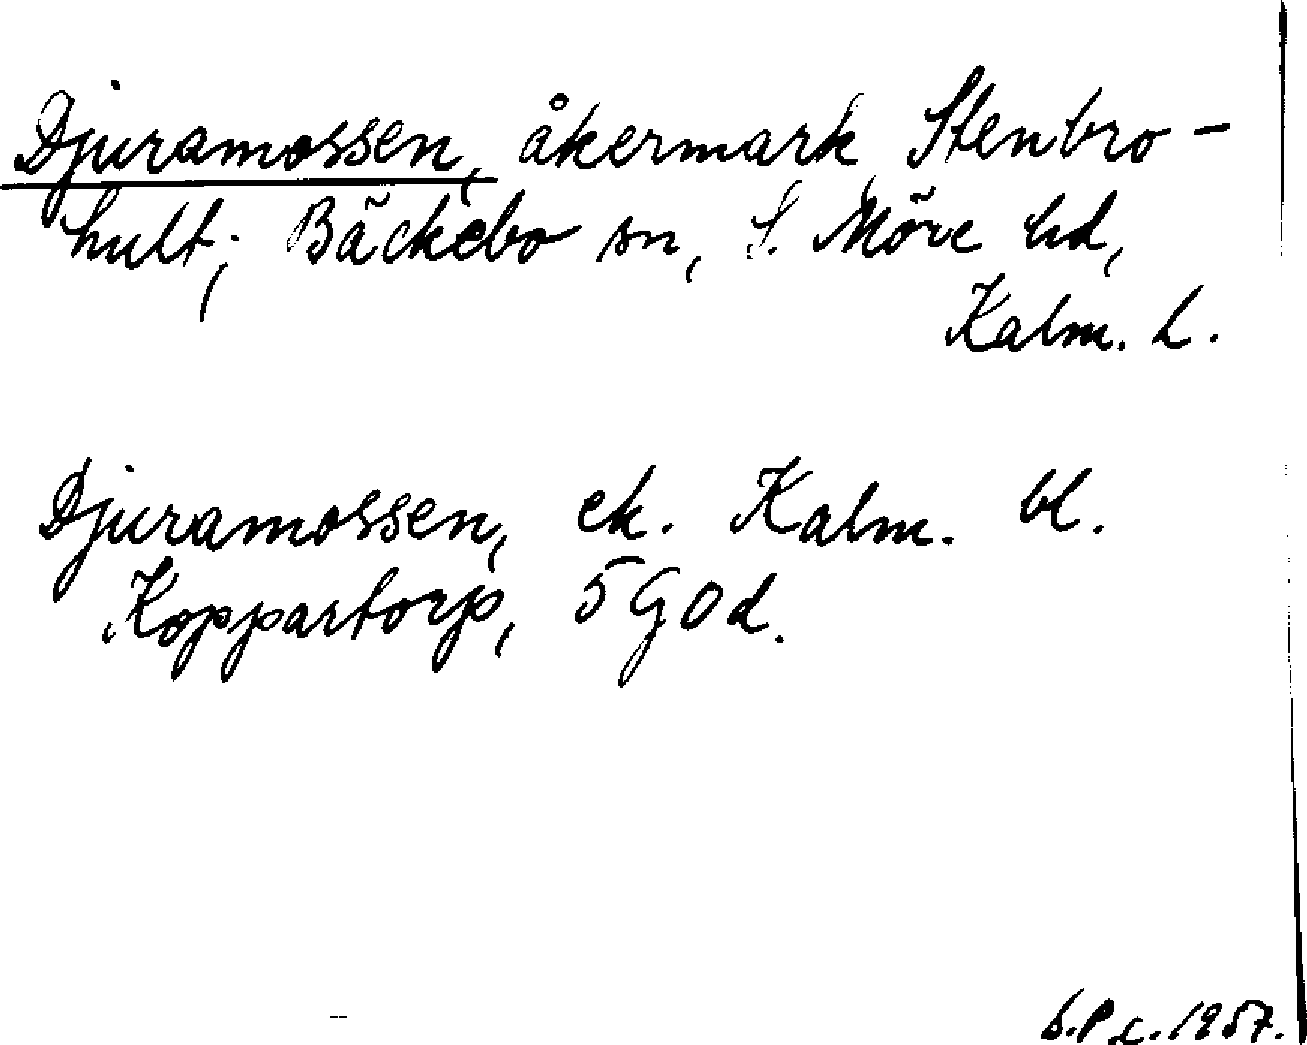 Djuramossen, åkermark Stenbro-
hult; Bäckebo sn, S. Möre hd,
Kalm. L.
Djuramossen, ek. Kalm. bl.
Koppartorp, 5 G O d.
1957.